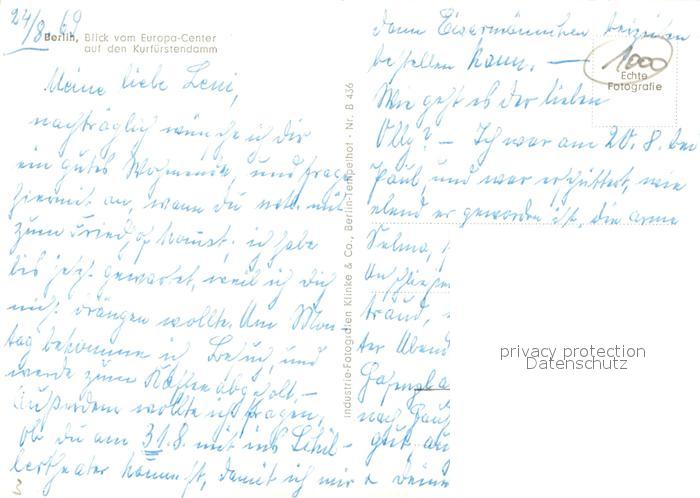 24/8 69
Berlin, Blick vom Europa-Center
auf den Kurfürstendamm
Meine liebe Leni,
nachträglich wünsche ich dir
ein gutes Wochenende, und frage
hiermit an, wann du mit
zum Friedhof kannst. ich habe
bis jetzt gewartet, weil ich dich
nicht drängen wollte. Am Mon-
tag bekomme ich Besuch, und
werde zum Kaffee abgeholt. –
Außerdem wollte ich fragen,
ob du am 31.8. mit ins Schil-
lertheater kommst, damit ich mir
3
Industrie-Fotografien Klinke & Co., Berlin-Tempelhof · Nr. B 436
dann beizeiten
bestellen kann. —
1000
Echte
Fotografie
Wie geht es der lieben
Olly? – Ich war am 20. 8. bei
Paul, und war erschüttert, wie
elend er geworden ist, die arme
Selma,
traud,
ter Abend
nach Hau
gut
x deine
privacy protection
Datenschutz